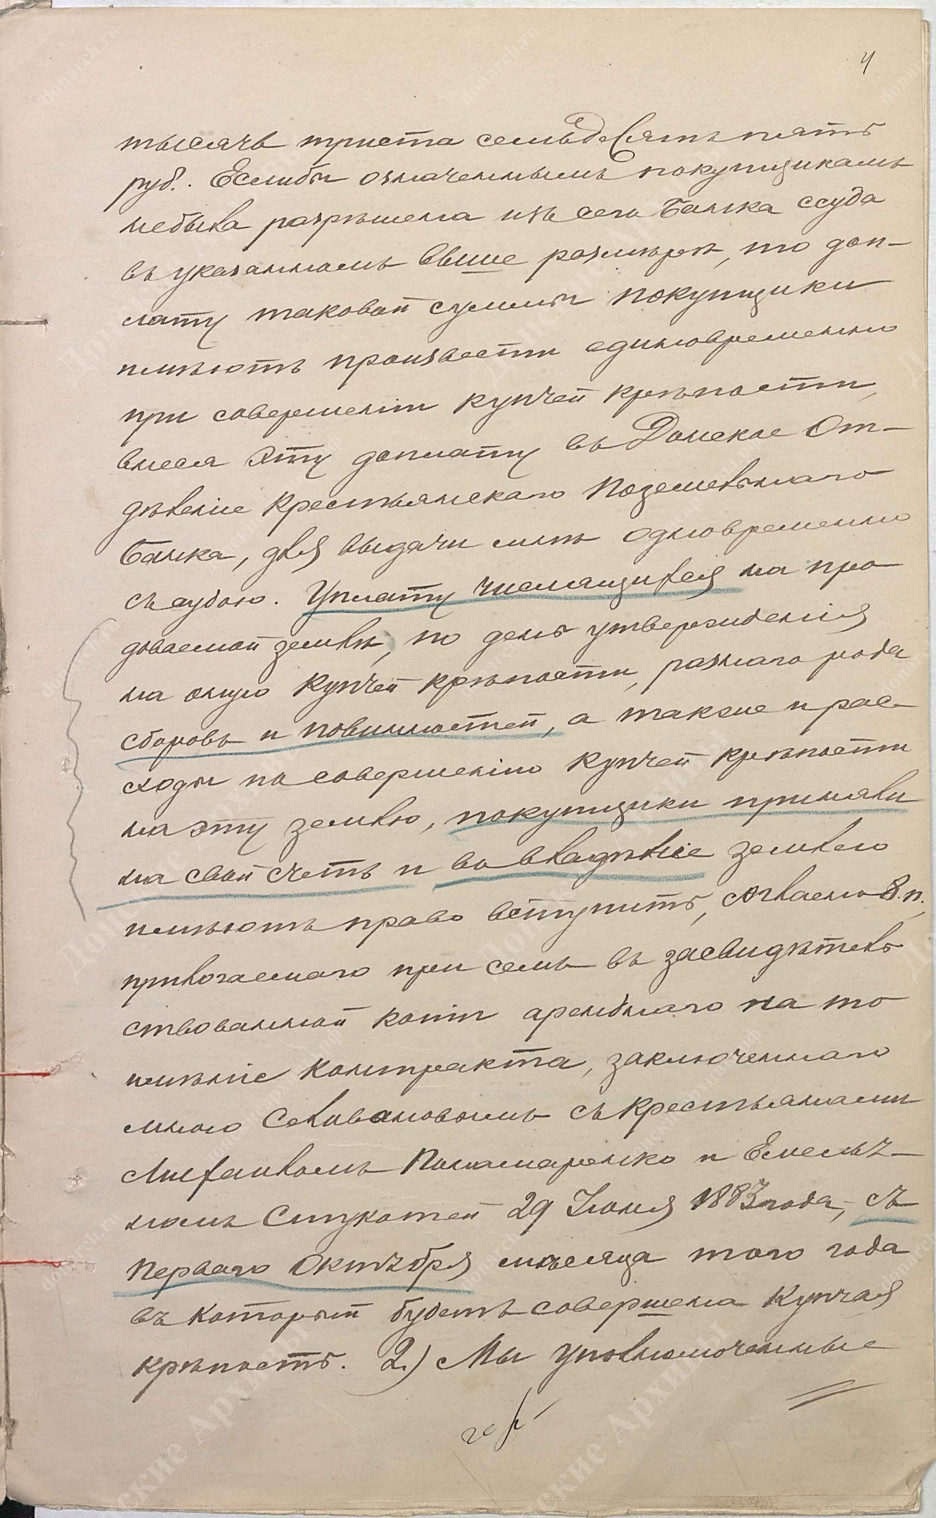 4
тысячъ триста семьдесятъ пять
руб. Еслибы означеннымъ покупщикамъ
небыла разрѣшена изъ сего Банка ссуда
въ указанномъ выше размѣрѣ, то доп-
лату таковой суммы покупщики
имѣютъ произвести единовременно
при совершеніи купчей крѣпости,
внеся эту доплату въ Донское От-
дѣленіе Крестьянскаго Поземельнаго
Банка, для выдачи мнѣ одновременно
съ ссудою. Уплату числящихся на про-
доваемой землѣ, по день утвержденія
на оную купчей крѣпости, разнаго рода
сборовъ и повинностей, а также и рас-
ходы по совершенію купчей крѣпости
на эту землю, покупщики приняли
на свой счетъ и во владѣніе землею
имѣютъ право вступить, согласно 8 п.
прилогаемаго при семъ въ засвидѣтель
ствованной копіи арендного на то
имѣніе контракта, заключеннаго
мною Селивановымъ съ крестьянами
Панамаренко и Емелья-
номъ 29 Іюня 1883 года, съ
перваго Октября месяца того года
въ который будетъ совершена купчая
крѣпость. 2.) Мы уполномоченные